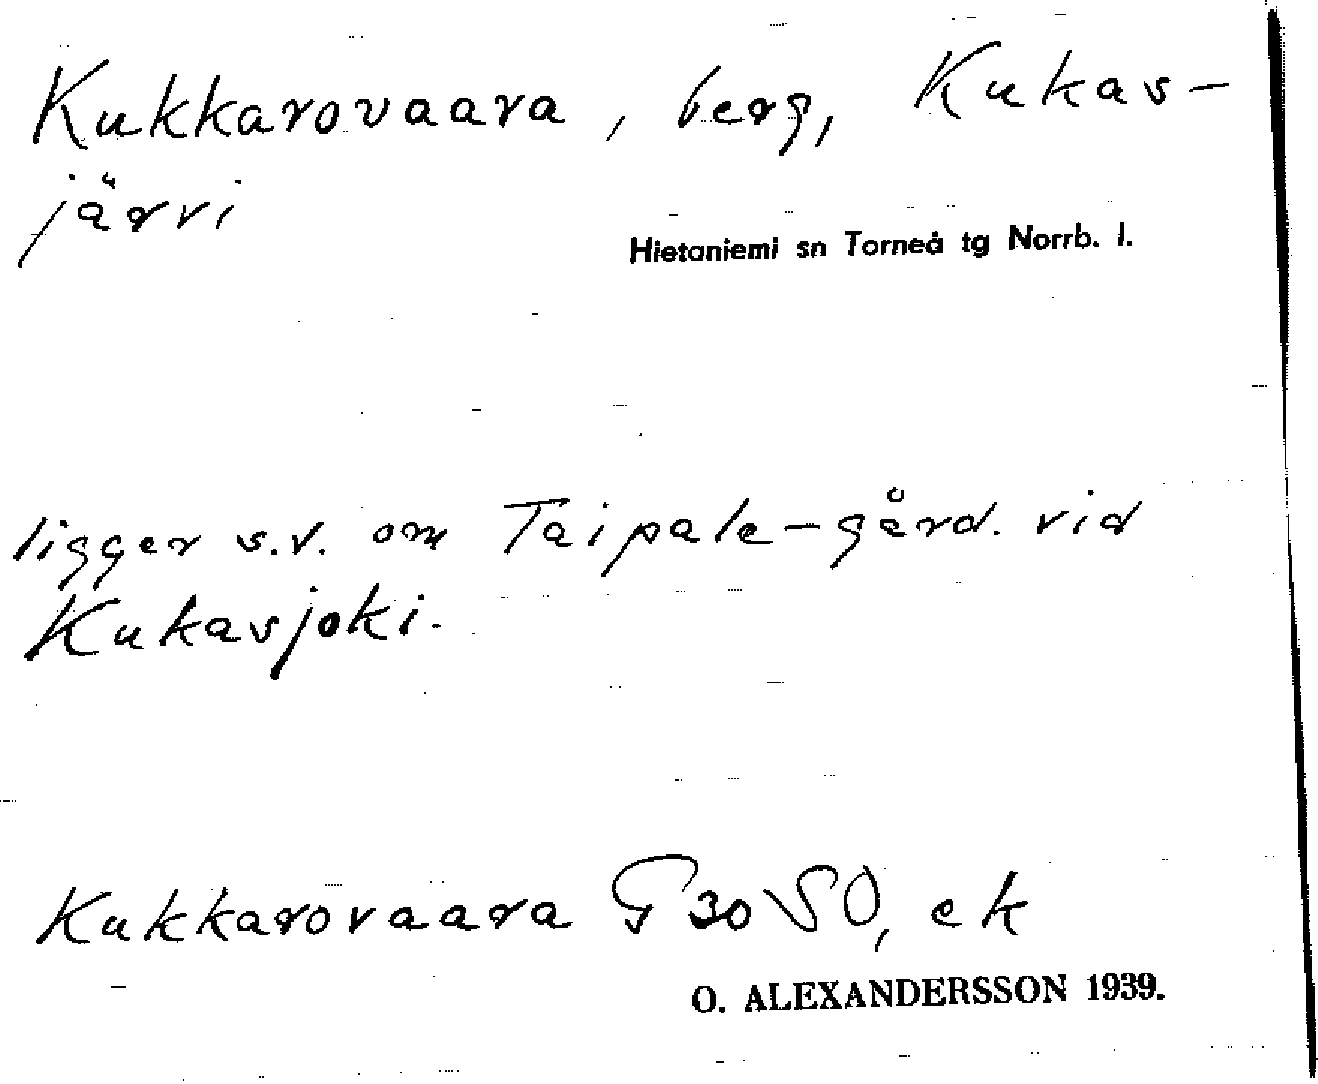 Kukkarovaara, berg, Kukas-
järvi
Hietaniemi sn Torneå tg Norrb. l.
ligger s.v. om Taipale-gård. vid
Kukasjoki.
Kukkarovaara G 30 SO, ek
O. ALEXANDERSSON 1939.